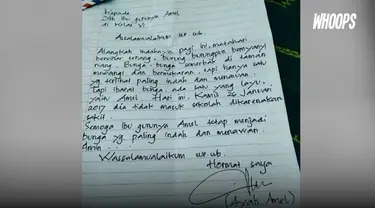 WHOOPS
Kepada
Yth Ibu gurunya Amel
di Kelas VI
Assalamualaikum wr. wb.
Alangkah indahnya pagi ini, matahari
bersinar terang, burung burungpun bernyanyi
riang. Bunga - bunga semerbak di taman
mewangi dan bermekaran, tapi hanya satu
yg terlihat paling indah dan menawan.
Tapi ibarat bunga, ada satu yang layu,
yaitu Amel. Hari ini, Kamis 26 Januari
2017 dia tidak masuk sekolah dikarenakan
sakit.
Semoga Ibu gurunya Amel tetap menjadi
bunga yg. paling indah dan menawan.
Amin
Wassalamualaikum wr. wb.
Hormat saya
(Ayah Amel)